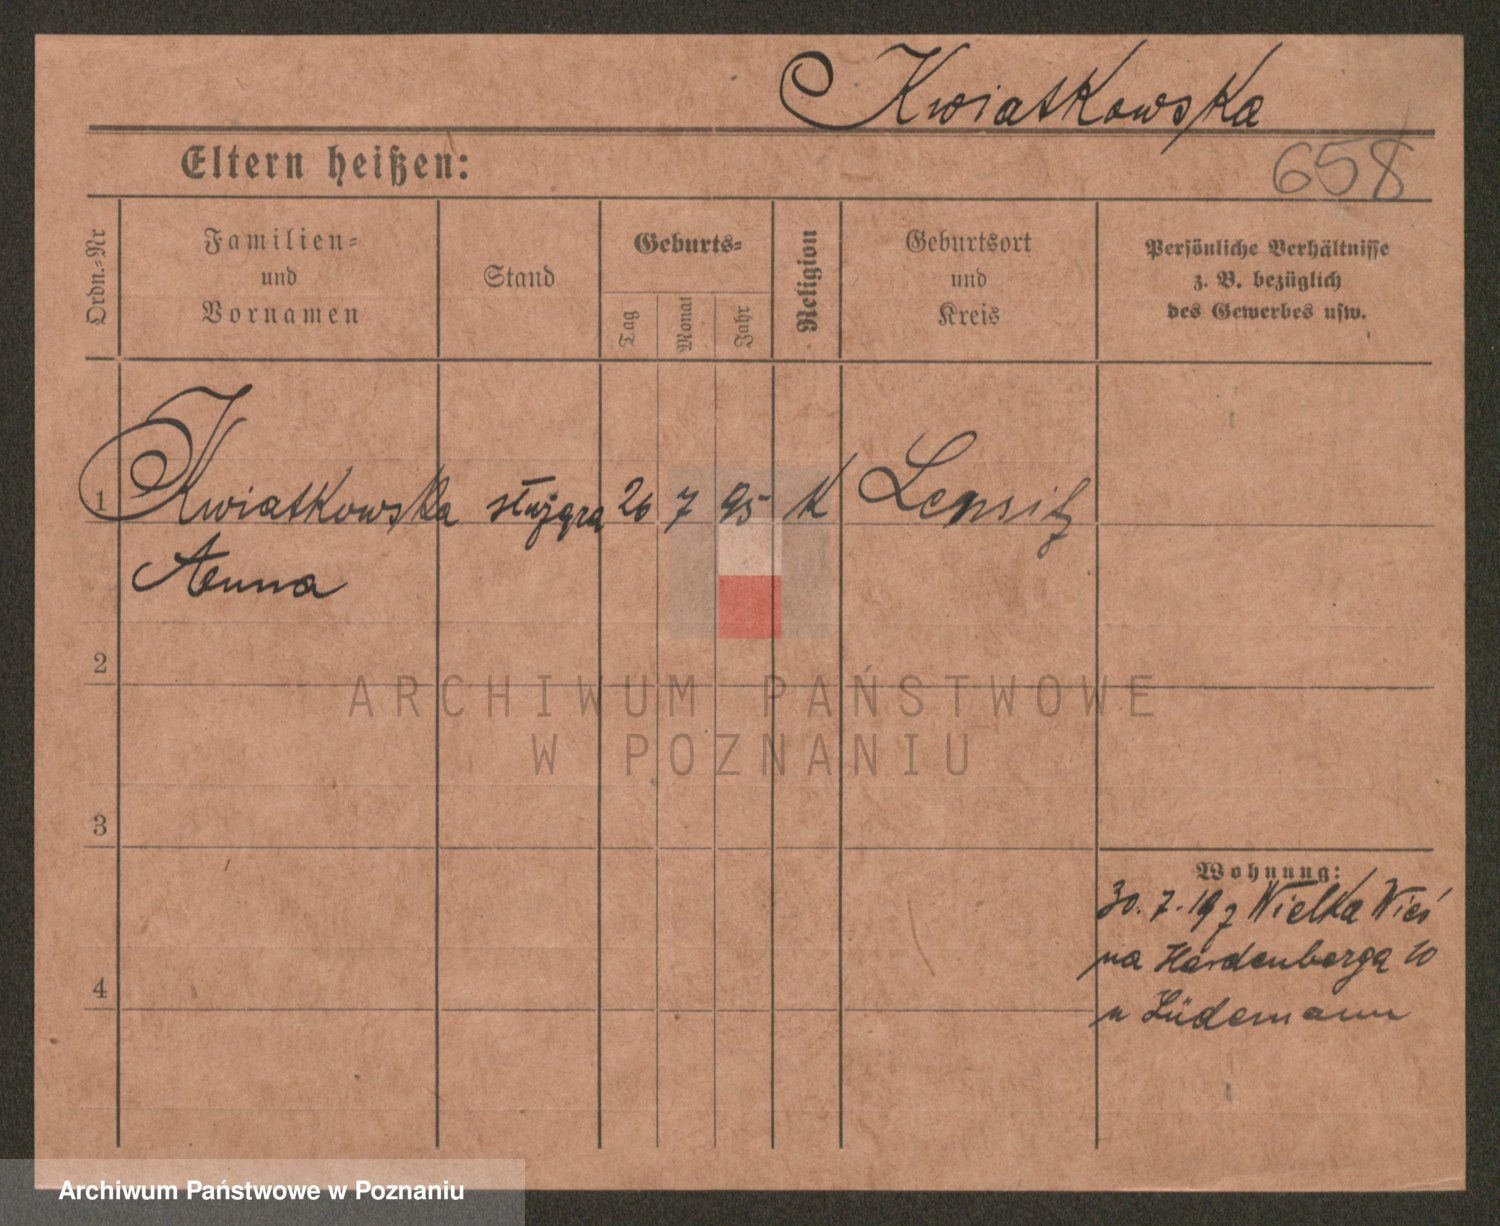 Kwiatkowska
Eltern heißen:
658
Ordn.-Nr
Familien-
und
Vornamen
Stand
Geburts-
Tag
Monat
Jahr
Religion
Geburtsort
und
Kreis
Persönliche Verhältnisse
z. B. bezüglich
des Gewerbes usw.
1
Kwiatkowska
służąca
26
7
95
K
Lensitz
Anna
2
ARCHIWUM PAŃSTWOWE
W POZNANIU
3
Wohnung:
30. 7. 19 z Wielka Wieś
na Hardenberga 10
4
u Lüdemann
Archiwum Państwowe w Poznaniu